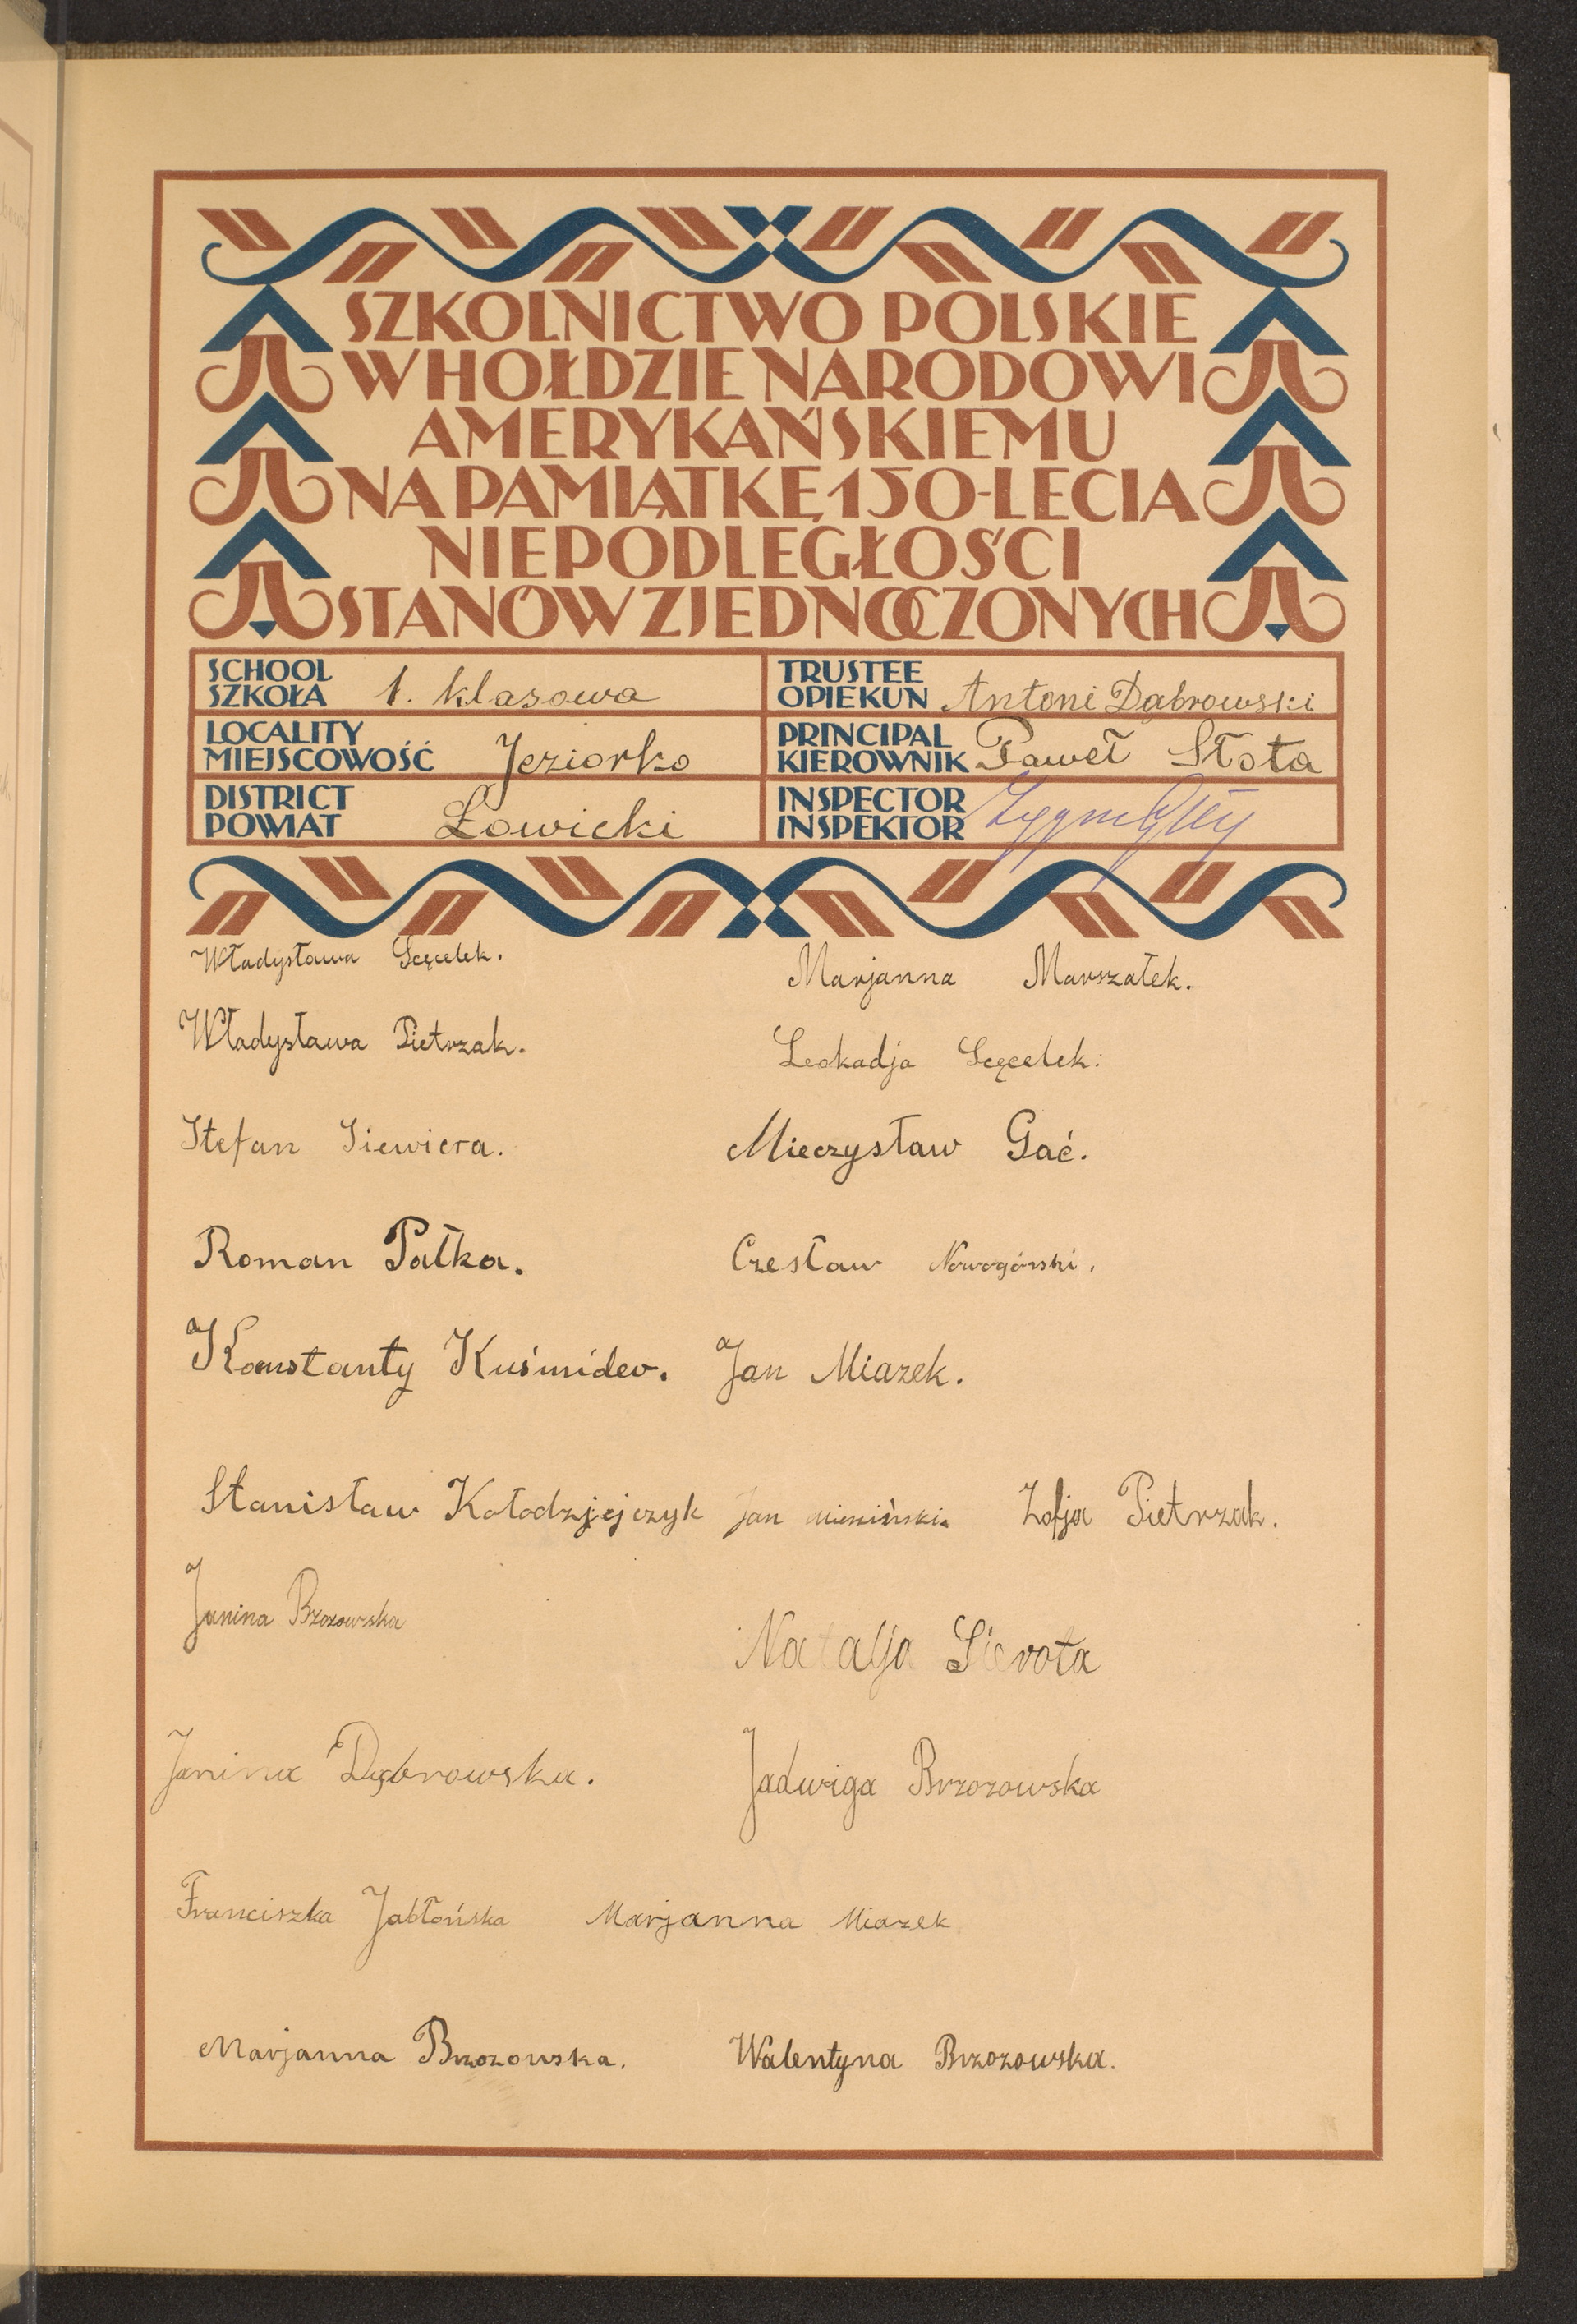 SZKOLNICTWO POLSKIE
W HOŁDZIE NARODOWI
AMERYKAŃSKIEMU
NA PAMIĄTKĘ 150-LECIA
NIEPODLEGŁOŚCI
STANÓW ZJEDNOCZONYCH
SCHOOL
SZKOŁA 1. klasowa
TRUSTEE
OPIEKUN Antoni Dąbrowski
LOCALITY
MIEJSCOWOŚĆ Jeziorko
PRINCIPAL
KIEROWNIK Paweł Słota
DISTRICT
POWIAT Łowicki
INSPECTOR
INSPEKTOR
Władysława Scęcelek.
Marjanna Marszałek.
Władysława Pietrzak.
Leokadja Scęcelek.
Stefan Siewiera.
Mieczysław Gać.
Roman Pałka.
Czesław Nowogórski.
Konstanty Kuśmider.
Jan Miazek.
Stanisław Kołodzjejczyk
Jan
Zofja Pietrzak.
Janina Brzozowska
Natalja Sierota
Janina Dąbrowska.
Jadwiga Brzozowska
Franciszka Jabłońska
Marjanna Miazek
Marjanna Brzozowska.
Walentyna Brzozowska.